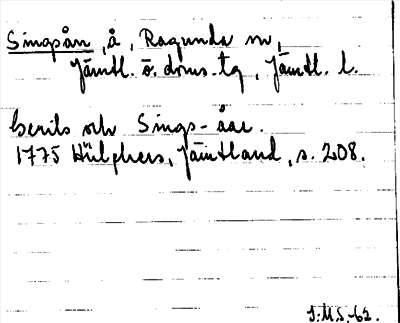 Singsån, å, Ragunda sn,
Jämtl. ö. doms.tg, Jämtl. l.
och Sings-åar.
1775 Hülphers, Jämtland, s. 208.
S.M.S.-62.